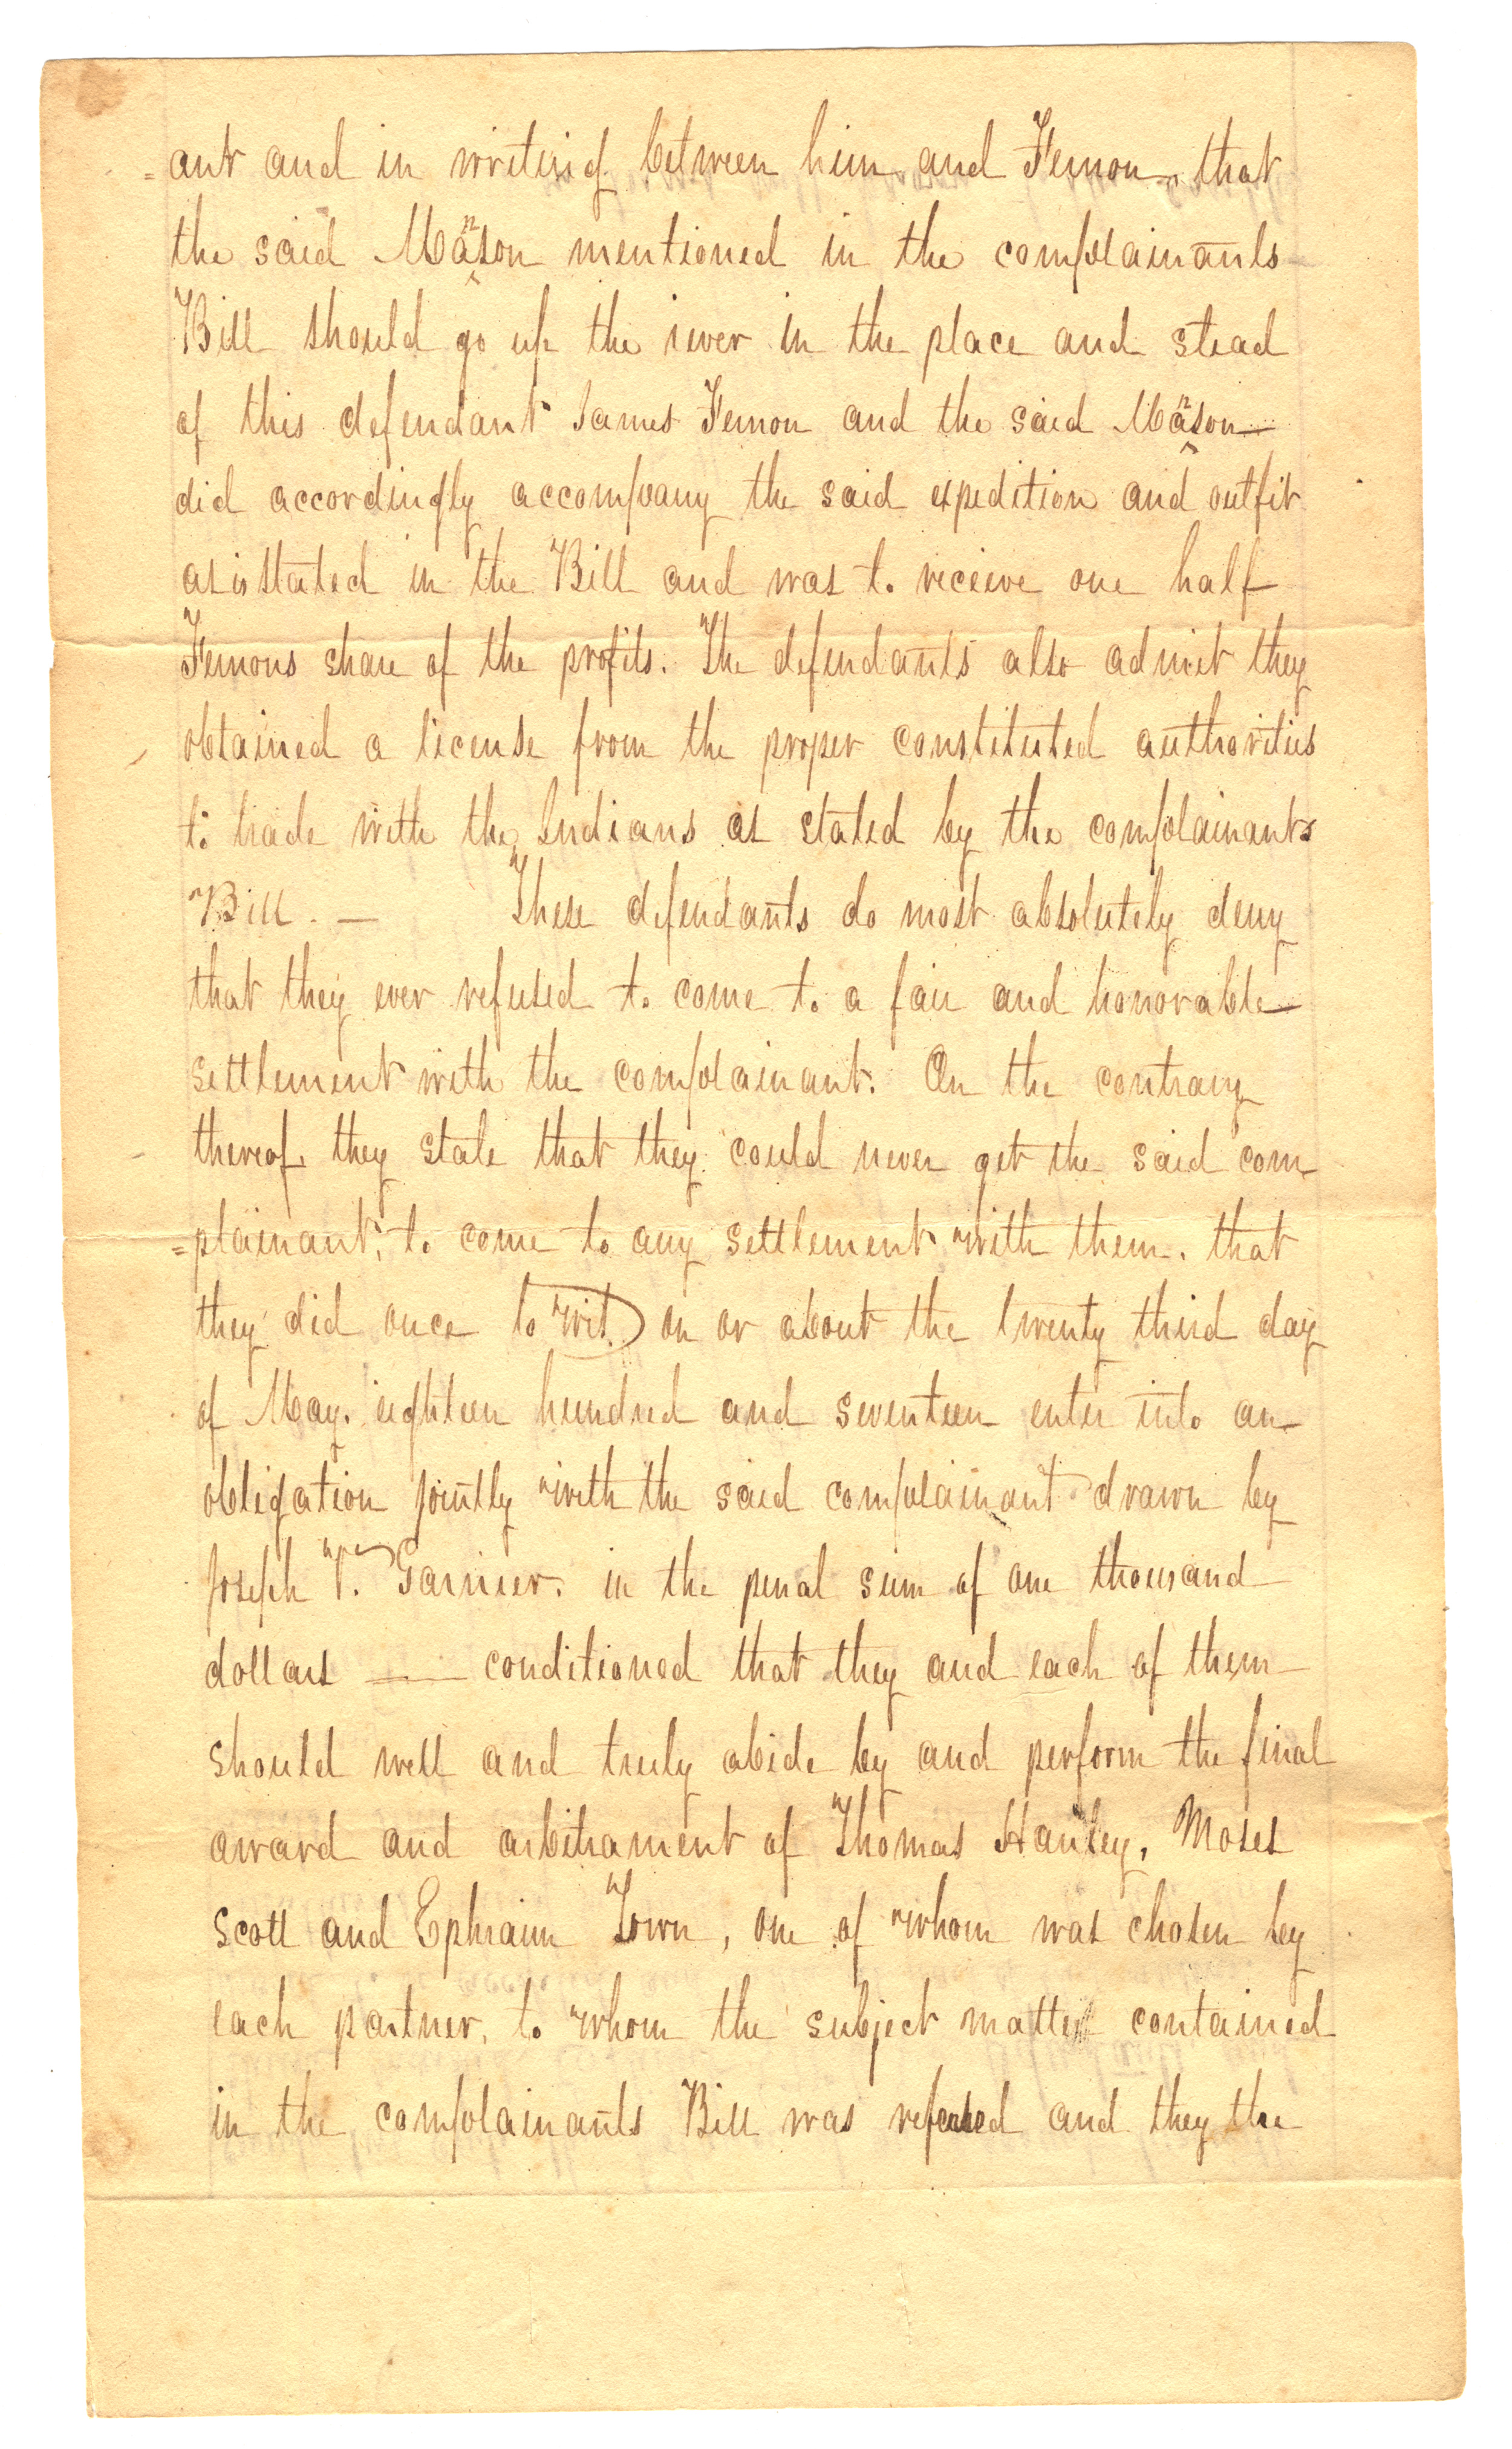 =ant and in writing between him and Fernon that
the said Manson mentioned in the complainants
Bill should go up the river in the place and stead
of this defendant James Fernon and the said Manson
did accordingly accompany the said expedition and outfit
as is stated in the Bill and was to receive one half
Fernons share of the profits. The defendants also admit they
obtained a license from the proper constituted authorities
to trade with the Indians as stated by the complainants
Bill. — These defendants do most absolutely deny
that they ever refused to come to a fair and honorable
settlement with the complainant. On the contrary
thereof they state that they could never get the said com
=plainant, to come to any settlement with them. that
they did once to wit) on or about the twenty third day
of May. eighteen hundred and seventeen enter into an
obligation jointly with the said complainant drawn by
Joseph V. Garnier. in the penal sum of one thousand
dollars — conditioned that they and each of them
should well and truly abide by and perform the final
award and arbitrament of Thomas Hanley, Moses
Scott and Ephraim Town, one of whom was chosen by
each partner, to whom the subject matter contained
in the complainants Bill was refered and they the